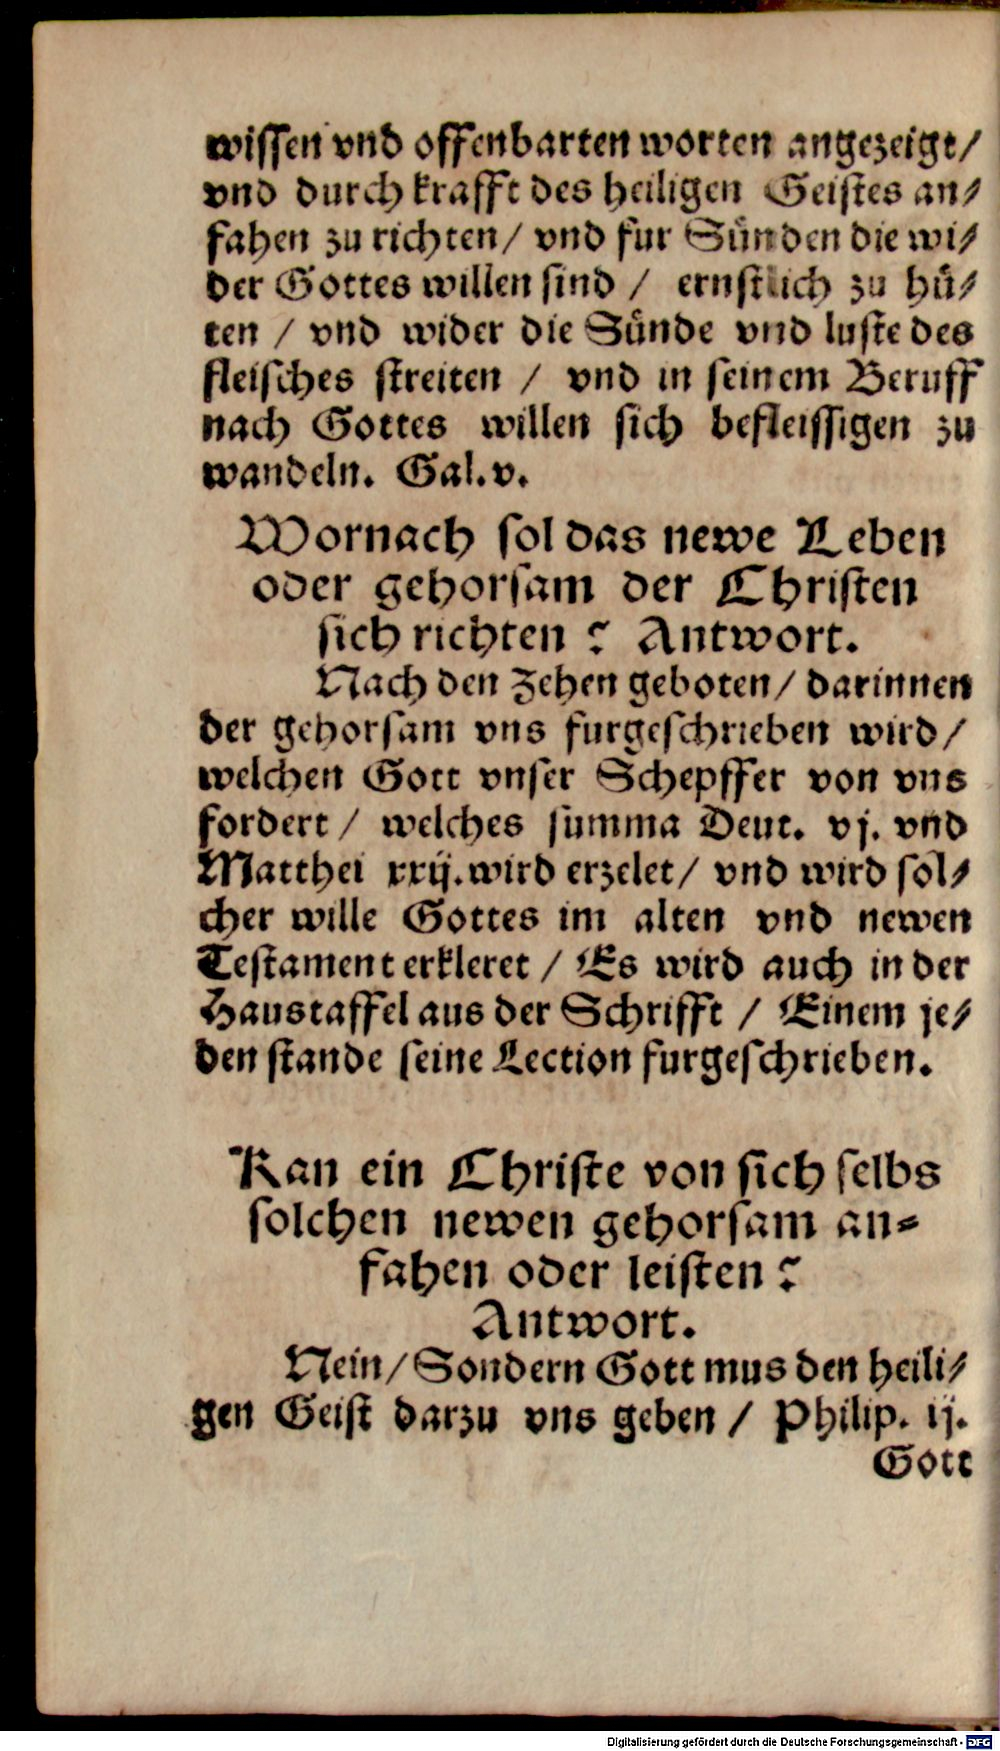 wissen vnd offenbarten worten angezeigt/
vnd durch krafft des heiligen Geistes an-
fahen zu richten/ vnd fur Sünden die wi-
der Gottes willen sind / ernstlich zu hü-
ten / vnd wider die Sünde vnd luste des
fleisches streiten / vnd in seinem Beruff
nach Gottes willen sich befleissigen zu
wandeln. Gal.v.
Wornach sol das newe Leben
oder gehorsam der Christen
sich richten? Antwort.
Nach den Zehen geboten/ darinnen
der gehorsam vns furgeschrieben wird/
welchen Gott vnser Schepffer von vns
fordert/ welches summa Deut. vj. vnd
Matthei xxij. wird erzelet/ vnd wird sol-
cher wille Gottes im alten vnd newen
Testament erkleret / Es wird auch in der
Haustaffel aus der Schrifft / Einem je-
den stande seine Lection furgeschrieben.
Kan ein Christe von sich selbs
solchen newen gehorsam an-
fahen oder leisten?
Antwort.
Nein/ Sondern Gott mus den heili-
gen Geist darzu vns geben / Philip. ij.
Gott
Digitalisierung gefördert durch die Deutsche Forschungsgemeinschaft - DFG